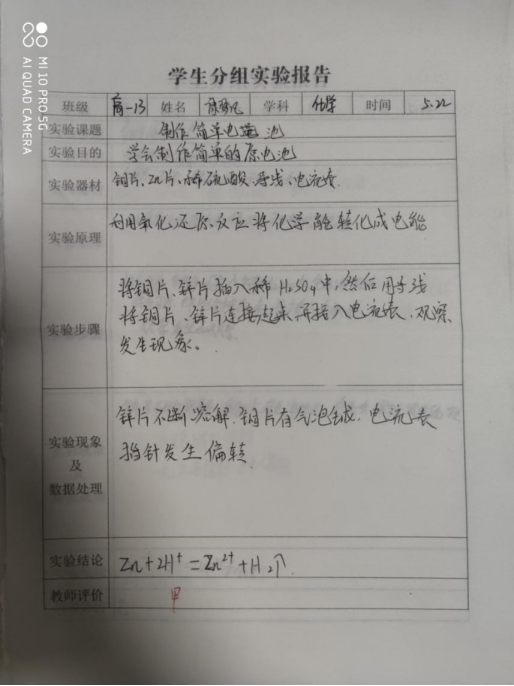 MI 10 PRO 5G
AI QUAD CAMERA
学生分组实验报告
班级 高一13 姓名 学科 化学 时间 5.22
实验课题 制作简单电 池
实验目的 学会制作简单的原电池
实验器材 铜片、Zn片、稀硫酸、导线、电流表
实验原理 利用氧化还原反应将化学能转化成电能
将铜片、锌片插入稀H₂SO₄中,然后用导线
实验步骤 将铜片、锌片连接起来,再接入电流表,观察
发生现象。
锌片不断溶解,铜片有气泡生成,电流表
实验现象 指针发生偏转.
及
数据处理
实验结论 Zn+2H⁺=Zn²⁺+H₂↑.
教师评价 甲